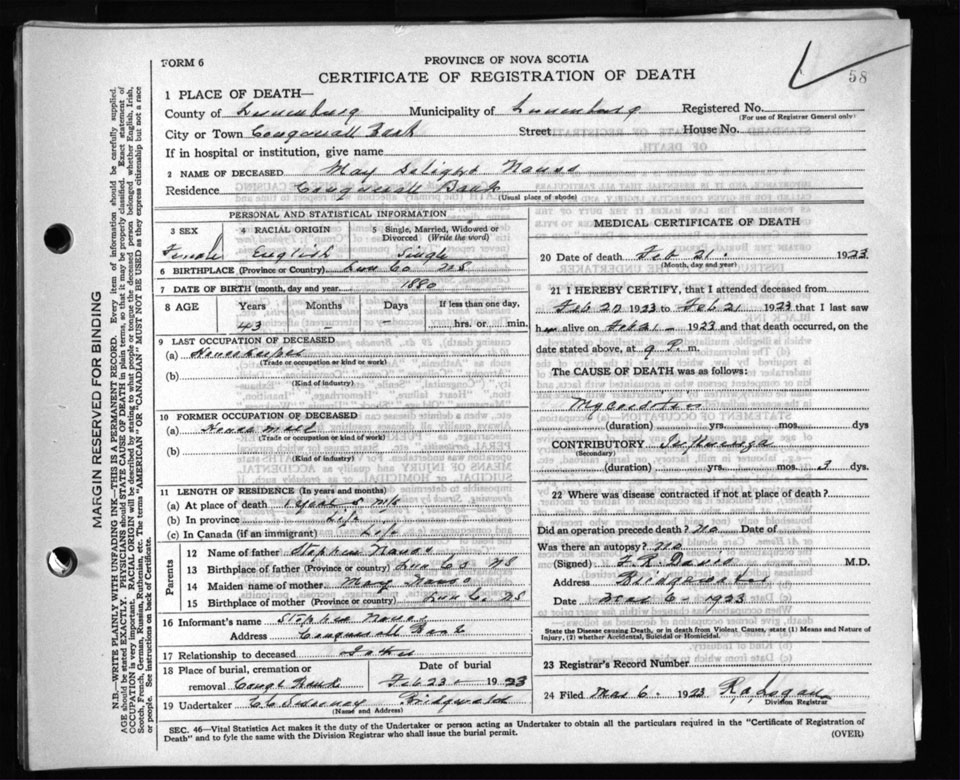 FORM 6
PROVINCE OF NOVA SCOTIA
58
CERTIFICATE OF REGISTRATION OF DEATH
1 PLACE OF DEATH—
County of Lunenburg Municipality of Lunenburg Registered No.
(For use of Registrar General only)
City or Town Conquerall Bank Street House No.
If in hospital or institution, give name
2 NAME OF DECEASED May Delight Nauss
Residence Conquerall Bank
(Usual place of abode)
PERSONAL AND STATISTICAL INFORMATION
3 SEX 4 RACIAL ORIGIN 5 Single, Married, Widowed or Divorced (Write the word)
Female English Single
6 BIRTHPLACE (Province or Country) Lun Co NS
7 DATE OF BIRTH (month, day and year) 1880
8 AGE Years Months Days If less than one day,
43 - - hrs. or min.
9 LAST OCCUPATION OF DECEASED
(a) Housekeeper
(Trade or occupation or kind of work)
(b)
(Kind of industry)
10 FORMER OCCUPATION OF DECEASED
(a) House maid
(Trade or occupation or kind of work)
(b)
(Kind of industry)
11 LENGTH OF RESIDENCE (In years and months)
(a) At place of death 1 year
(b) In province Life
(c) In Canada (if an immigrant) Life
Parents
12 Name of father Stephen Nauss
13 Birthplace of father (Province or country) Lun Co NS
14 Maiden name of mother Mary Nauss
15 Birthplace of mother (Province or country) Lun Co. NS
16 Informant's name Stephen Nauss
Address Conquerall Bank
17 Relationship to deceased Father
18 Place of burial, cremation or Date of burial
removal Conq Bank Feb 23 1923
19 Undertaker Bridgewater
(Name and Address)
MEDICAL CERTIFICATE OF DEATH
20 Date of death Feb 21. 1923
(Month, day and year)
21 I HEREBY CERTIFY, that I attended deceased from
Feb 20 1923 to Feb 21 1923 that I last saw
her alive on Feb 21 - 1923 and that death occurred, on
date stated above, at 9 P. m.
The CAUSE OF DEATH was as follows:
Myocarditis
(duration) yrs. mos. dys
CONTRIBUTORY Influenza
(Secondary)
(duration) yrs. mos. 3 dys.
22 Where was disease contracted if not at place of death?
Did an operation precede death? No Date of
Was there an autopsy? No
(Signed) F. R. Davis M.D.
Address Bridgewater
Date Mar 6 - 1923
State the Disease causing Death, or in death from Violent Causes, state (1) Means and Nature of
Injury, (2) whether Accidental, Suicidal or Homicidal.
23 Registrar's Record Number
24 Filed Mar 6. 1923 R. A. Logan
Division Registrar
SEC. 46—Vital Statistics Act makes it the duty of the Undertaker or person acting as Undertaker to obtain all the particulars required in the "Certificate of Registration of
Death" and to fyle the same with the Division Registrar who shall issue the burial permit.
(OVER)
MARGIN RESERVED FOR BINDING
N.B.—WRITE PLAINLY WITH UNFADING INK—THIS IS A PERMANENT RECORD. Every item of information should be carefully supplied.
AGE should be stated EXACTLY. PHYSICIANS should STATE CAUSE OF DEATH in plain terms, so that it may be properly classified. Exact statement of
OCCUPATION is very important. RACIAL ORIGIN will be described by stating to what people or tongue the deceased person belonged whether English, Irish,
Scotch, French, German, Russian, Ruthenian, etc. The terms "AMERICAN" or "CANADIAN" MUST NOT BE USED as they express citizenship but not a race
or people. See instructions on back of Certificate.